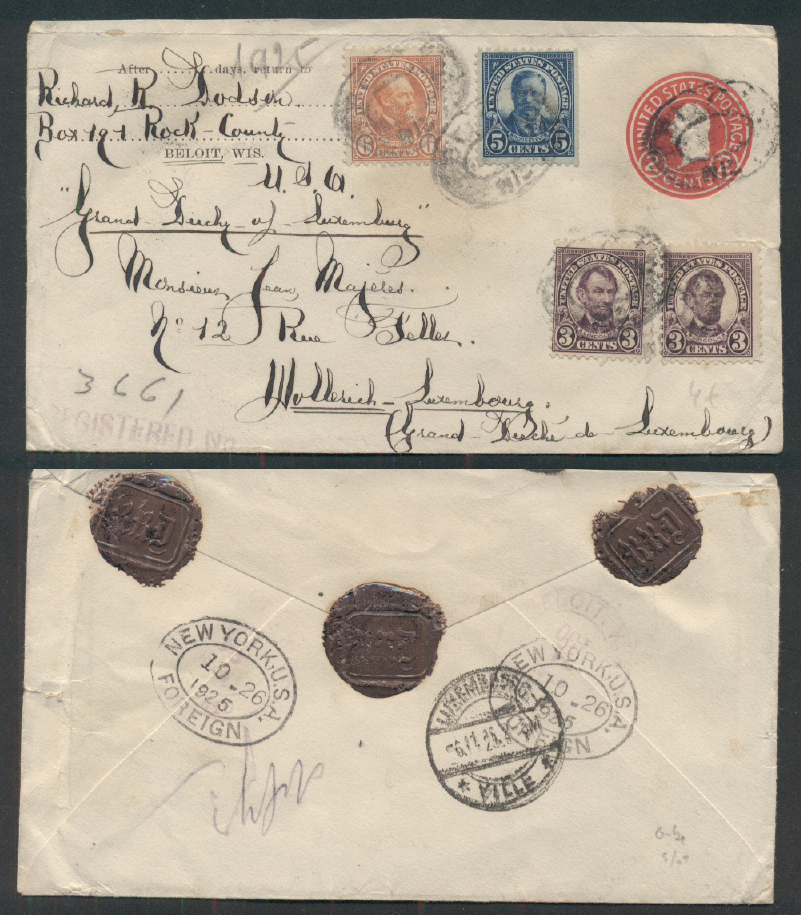 1925
After ........ days, return to
Richard R. Dodson
Box 194 Rock-County
BELOIT, WIS.
U.S.A.
"Grand-Duchy-of-Luxemburg"
UNITED STATES POSTAGE
6 6
UNITED STATES POSTAGE
5 CENTS 5
UNITED STATES POSTAGE
2 CENTS 2
Monsieur Jean Majeres.
No 12 Rue Felles.
UNITED STATES POSTAGE
LINCOLN
3 CENTS 3
UNITED STATES POSTAGE
LINCOLN
3 CENTS 3
Hollerich-Luxembourg.
(Grand-Duché de Luxembourg)
3661
REGISTERED No
4€
NEW YORK, U.S.A.
10-26
1925
FOREIGN
NEW YORK, U.S.A.
10-26
1925
FOREIGN
LUXEMBOURG
VILLE